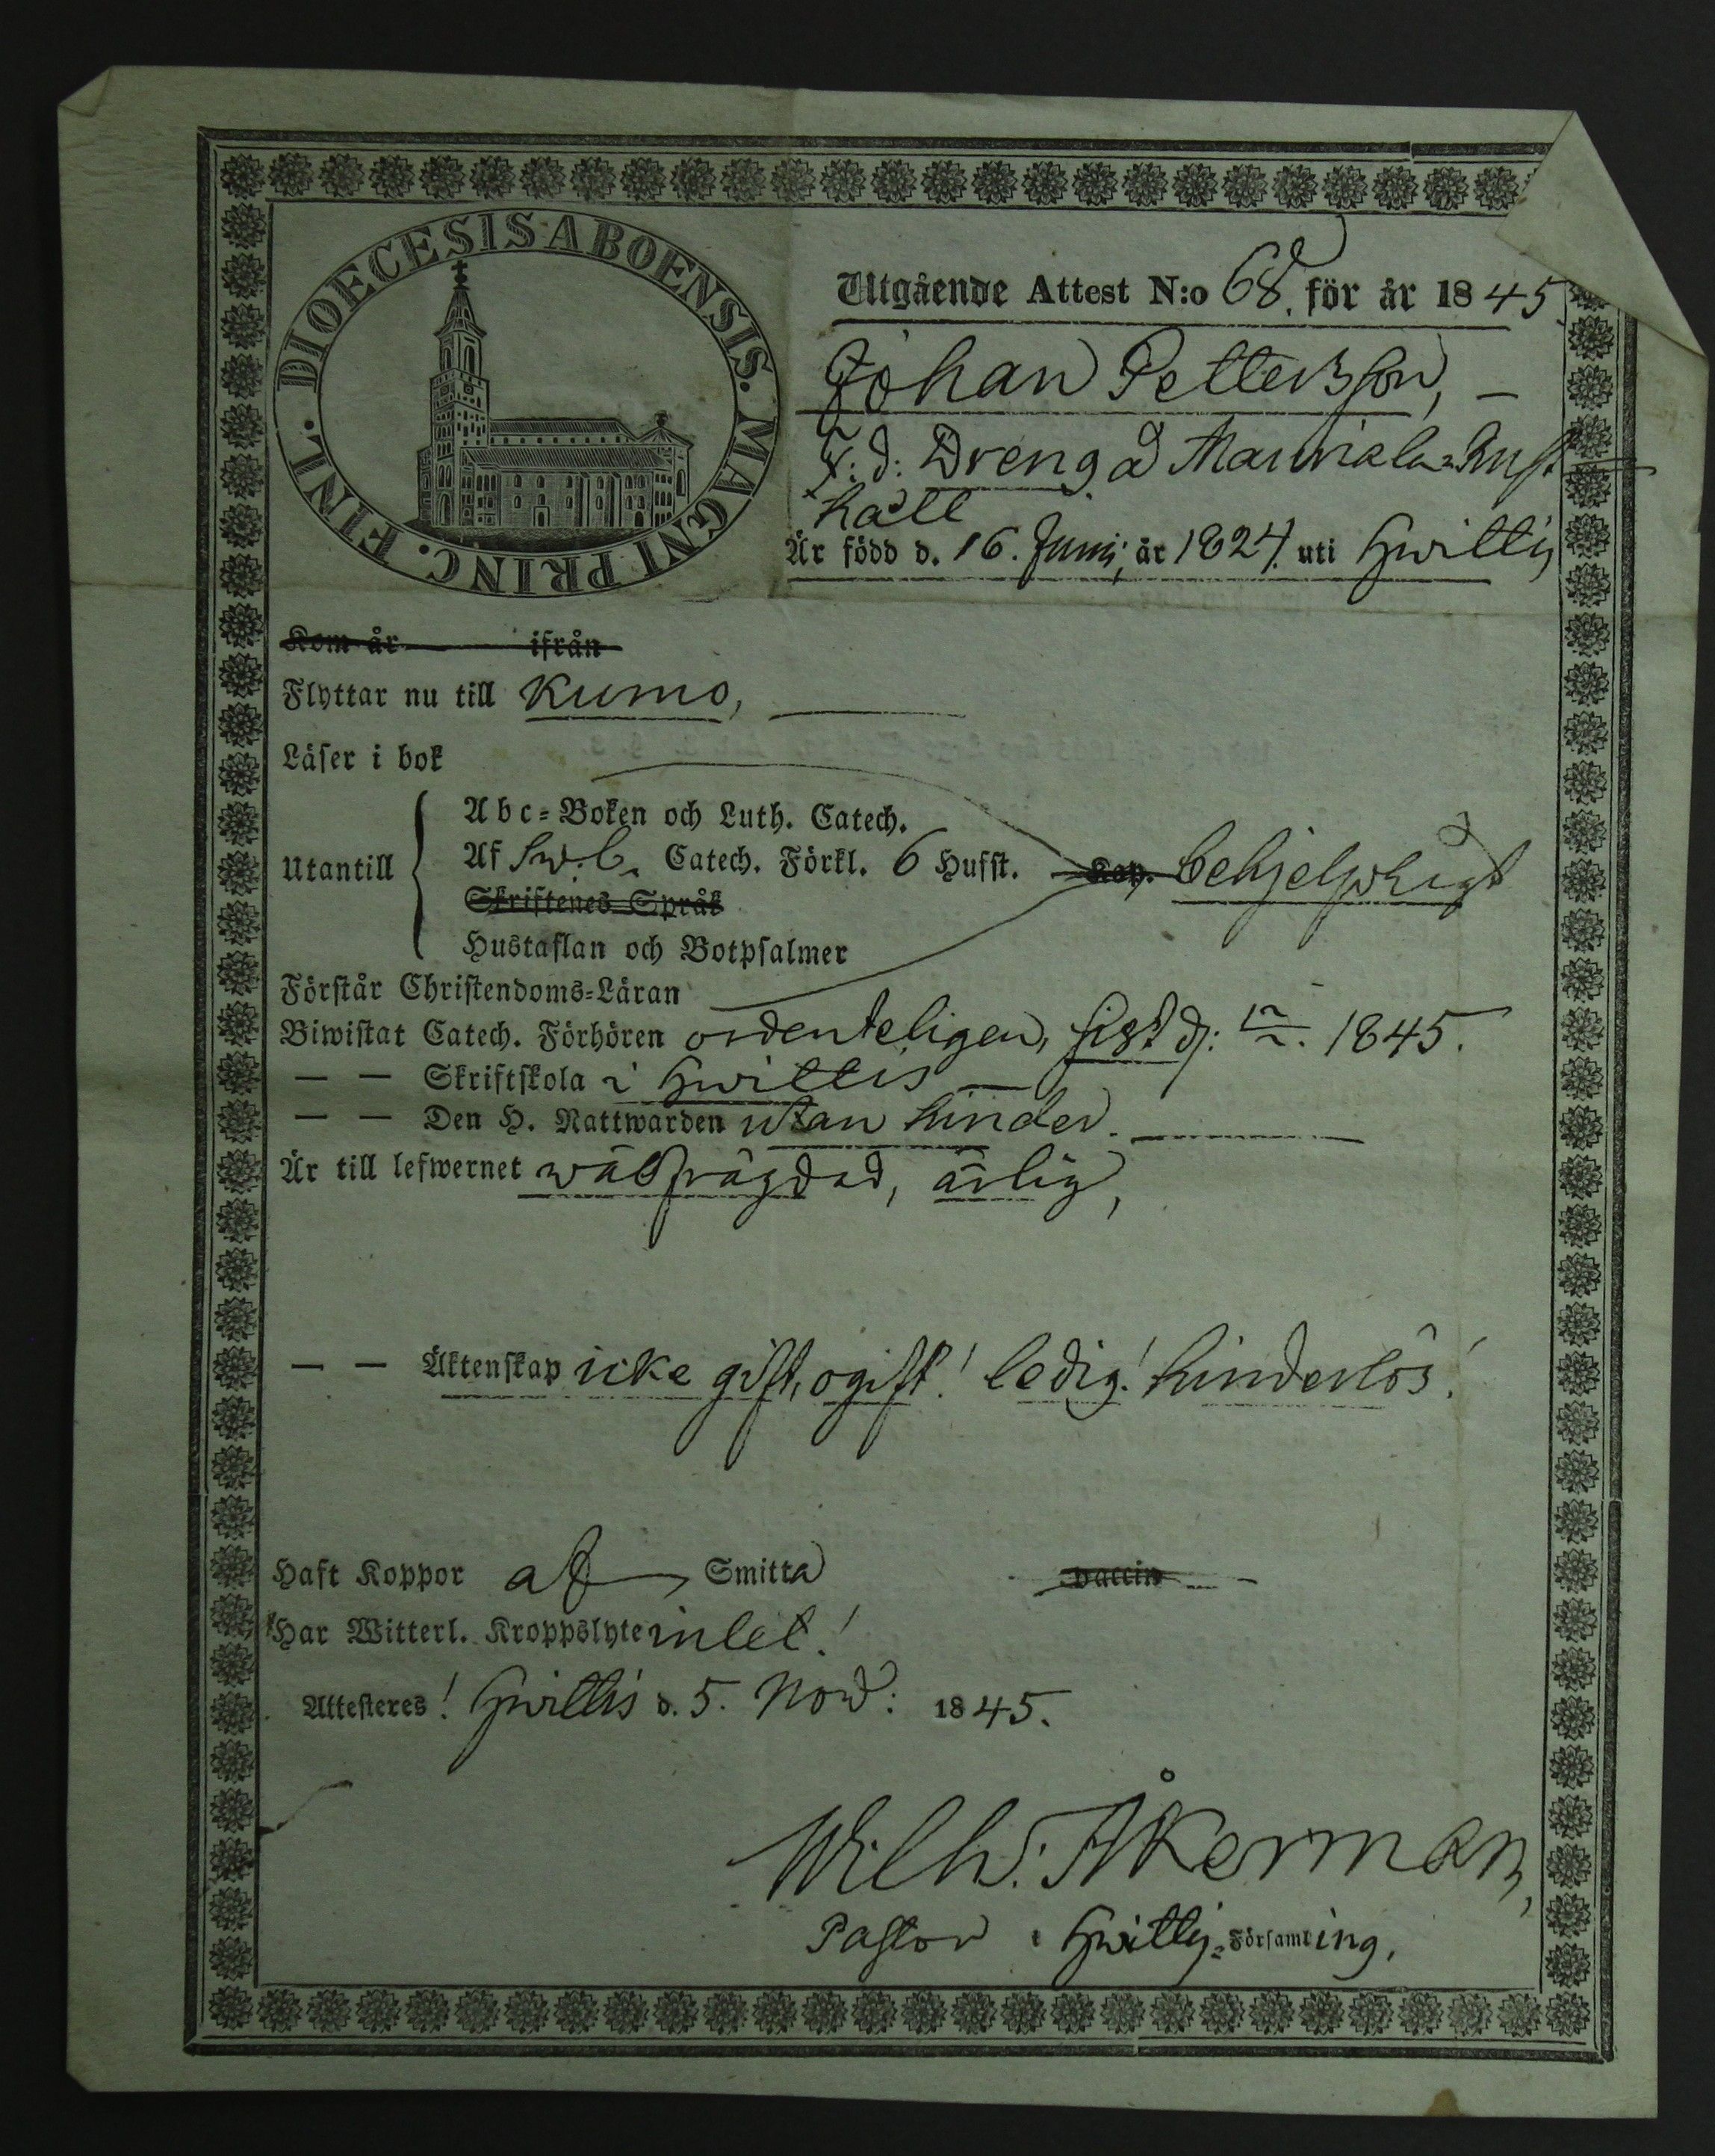 DIOECESIS ABOENSIS. MAGNI PRINC. FINL.
Utgående Attest N:o 68. för år 1845.
Johan Pettersson, —
F. d: Dreng å Mauriala Rust
håll
Är född d. 16. Junii, år 1824. uti Hwittis
Kom år ifrån
Flyttar nu till Kumo, —
Läser i bok
Utantill
Abc-Boken och Luth. Catech.
Af Sw.b. Catech. Förkl. 6 Hufst. Kap. behjelpligt
Skriftenes Språk
Hustaflan och Botpsalmer
Förstår Christendoms-Läran
Biwistat Catech. Förhören ordenteligen, sist d: 1845.
— — Skriftskola i Hwittis —
— — Den H. Nattwarden utan hinder. —
Är till lefwernet wälfrägdad, ärlig,
— — Äktenskap icke gift, ogift! ledig! hinderlös!
Haft Koppor af Smitta vaccin
Har Witterl. Kroppslyte intet!
Attesteres! Hwittis d. 5. Nov: 1845.
Wilh: Åkerman,
Pastor i Hwittis-Församling.